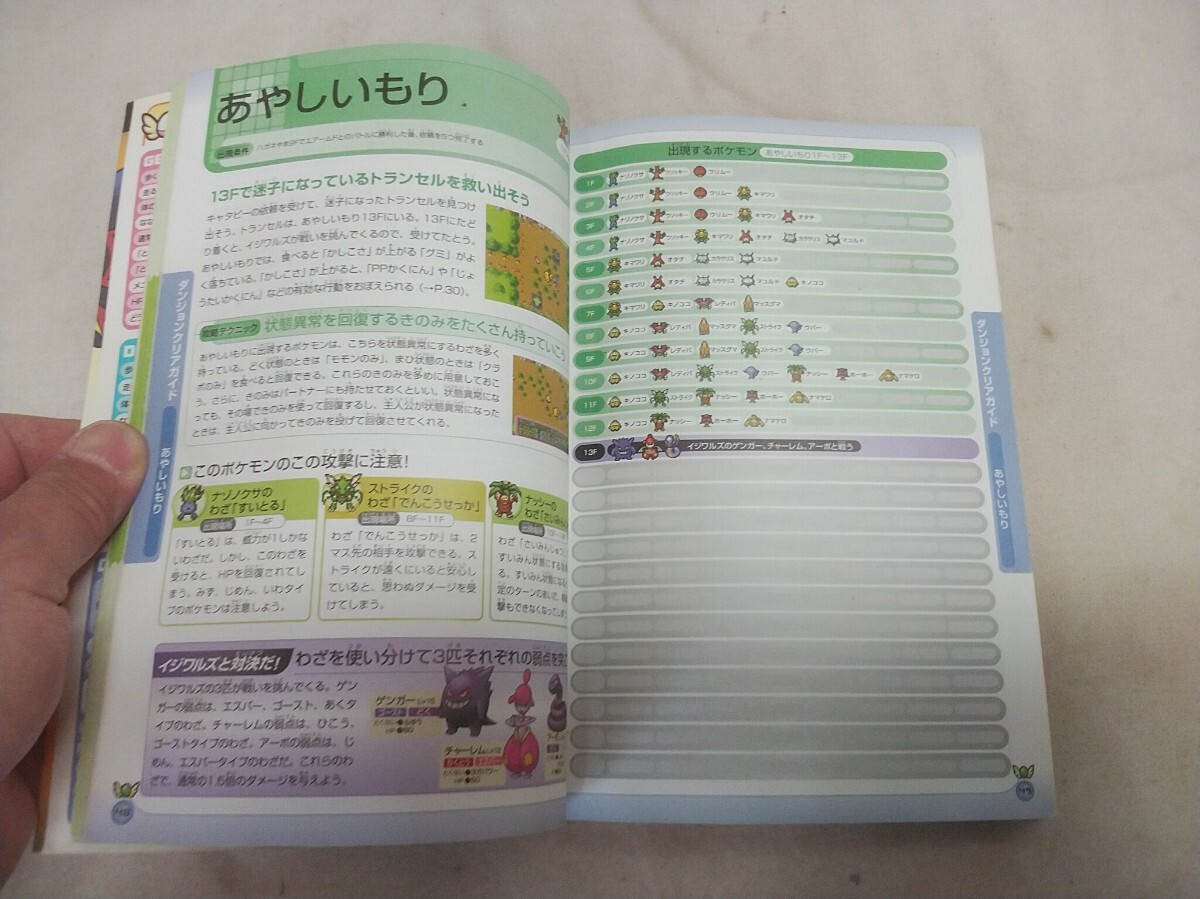 あやしいもり
出現条件 ハガネやま9Fでエアームドとのバトルに勝利した後、依頼を5つ完了する
13Fで迷子になっているトランセルを救い出そう
キャタピーの依頼を受けて、迷子になったトランセルを見つけ
出そう。トランセルは、あやしいもり13Fにいる。13Fにたど
り着くと、イジワルズが戦いを挑んでくるので、受けてたとう。
あやしいもりでは、食べると「かしこさ」が上がる「グミ」がよ
く落ちている。「かしこさ」が上がると、「PPかくにん」や「じょ
うたいかくにん」などの有効な行動をおぼえられる(→P.30)。
攻略テクニック 状態異常を回復するきのみをたくさん持っていこう
あやしいもりに出現するポケモンは、こちらを状態異常にするわざを多く
持っている。どく状態のときは「モモンのみ」、まひ状態のときは「クラ
ボのみ」を食べると回復できる。これらのきのみを多めに用意しておこ
う。さらに、きのみはパートナーにも持たせておくといい。状態異常にな
っても、その場できのみを使って回復するし、主人公が状態異常になった
ときは、主人公に向かってきのみを投げて回復させてくれる。
このポケモンのこの攻撃に注意!
ナゾノクサの
わざ「すいとる」
出現場所 1F〜4F
「すいとる」は、威力が1しかな
いわざだ。しかし、このわざを
受けると、HPを回復されてし
まう。みず、じめん、いわタイ
プのポケモンは注意しよう。
ストライクの
わざ「でんこうせっか」
出現場所 8F〜11F
わざ「でんこうせっか」は、2
マス先の相手を攻撃できる。ス
トライクが遠くにいると安心し
ていると、思わぬダメージを受
けてしまう。
ナッシーの
わざ「さいみん
わざ「さいみんじゅつ
すいみん状態にする
る。すいみん状態になる
定のターンのあいだ、
撃もできなくなってしま
イジワルズと対決だ! わざを使い分けて3匹それぞれの弱点を突
イジワルズの3匹が戦いを挑んでくる。ゲン
ガーの弱点は、エスパー、ゴースト、あくタ
イプのわざ。チャーレムの弱点は、ひこう、
ゴーストタイプのわざ。アーボの弱点は、じ
めん、エスパータイプのわざだ。これらのわ
ざで、通常の1.5倍のダメージを与えよう。
ゲンガー
ゴースト どく
チャーレム
かくとう エスパー
ダンジョンクリアガイド
あやしいもり
出現するポケモン あやしいもり1F〜13F
1F ナゾノクサ ウソッキー ウリムー
2F ナゾノクサ ウソッキー ウリムー キマワリ
3F ナゾノクサ ウソッキー ウリムー キマワリ オタチ
4F ナゾノクサ ウソッキー キマワリ オタチ カラサリス マユルド
5F キマワリ オタチ カラサリス マユルド
6F キマワリ オタチ カラサリス マユルド キノココ
7F キマワリ キノココ レディバ マッスグマ
8F キノココ レディバ マッスグマ ストライク ウパー
9F キノココ レディバ マッスグマ ストライク ウパー
10F キノココ レディバ ストライク ウパー ナッシー ホーホー アマケロ
11F キノココ ストライク ナッシー ホーホー
12F キノココ ナッシー ホーホー
13F イジワルズのゲンガー、チャーレム、アーボと戦う
ダンジョンクリアガイド
あやしいもり